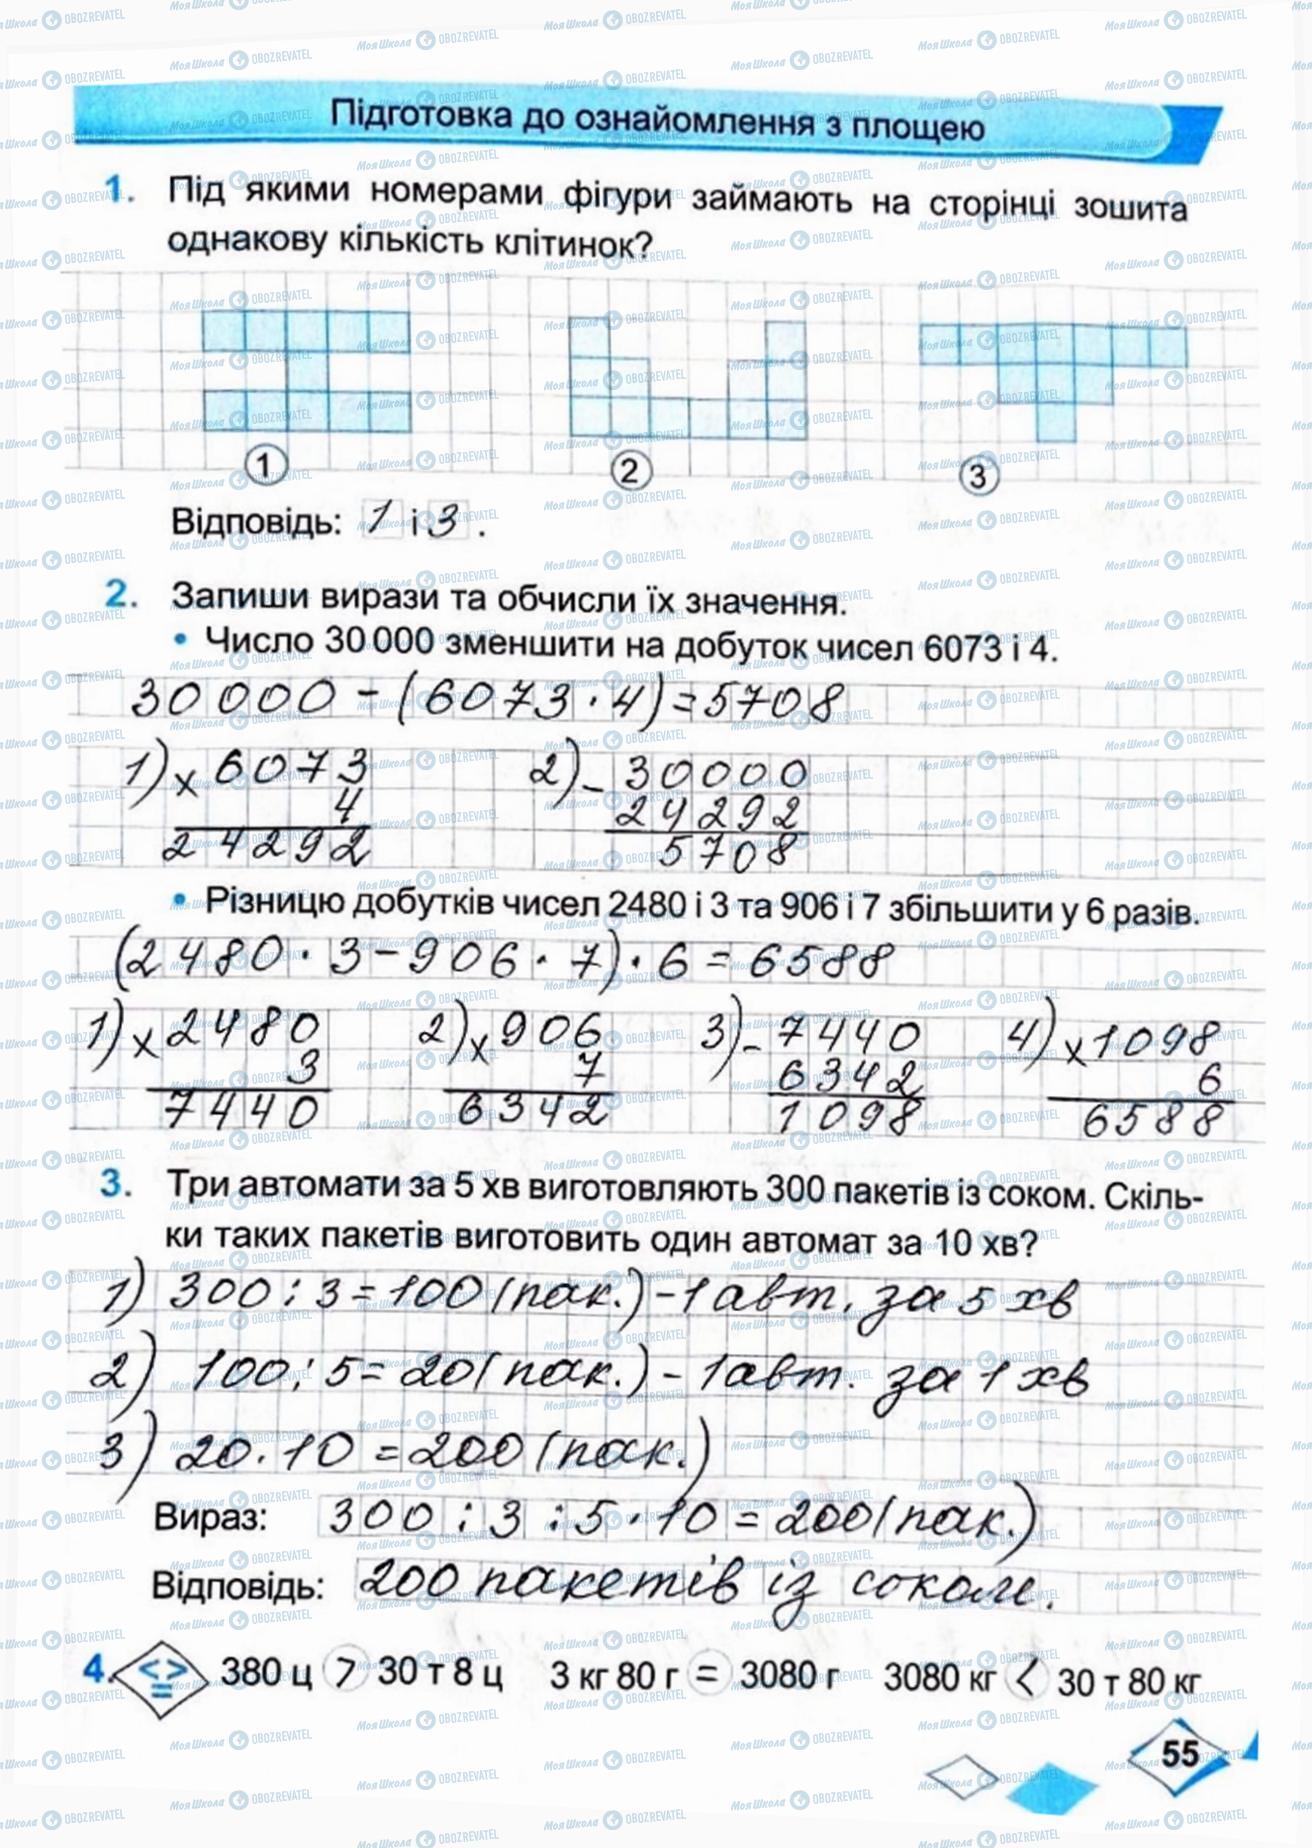 Підготовка до ознайомлення з площею
1. Під якими номерами фігури займають на сторінці зошита
однакову кількість клітинок?
1 2 3
Відповідь: 1 і 3.
2. Запиши вирази та обчисли їх значення.
• Число 30 000 зменшити на добуток чисел 6073 і 4.
30000 - (6073 · 4) = 5708
1) × 6073 2) - 30000
4 24292
24292 5708
• Різницю добутків чисел 2480 і 3 та 906 і 7 збільшити у 6 разів.
(2480 · 3 - 906 · 7) · 6 = 6588
1) × 2480 2) × 906 3) - 7440 4) × 1098
3 7 6342 6
7440 6342 1098 6588
3. Три автомати за 5 хв виготовляють 300 пакетів із соком. Скіль-
ки таких пакетів виготовить один автомат за 10 хв?
1) 300 : 3 = 100 (пак.) - 1 авт. за 5 хв
2) 100 : 5 = 20 (пак.) - 1 авт. за 1 хв
3) 20 · 10 = 200 (пак.)
Вираз: 300 : 3 : 5 · 10 = 200 (пак.)
Відповідь: 200 пакетів із соком.
4. < > = 380 ц > 30 т 8 ц 3 кг 80 г = 3080 г 3080 кг < 30 т 80 кг
55
Моя Школа OBOZREVATEL